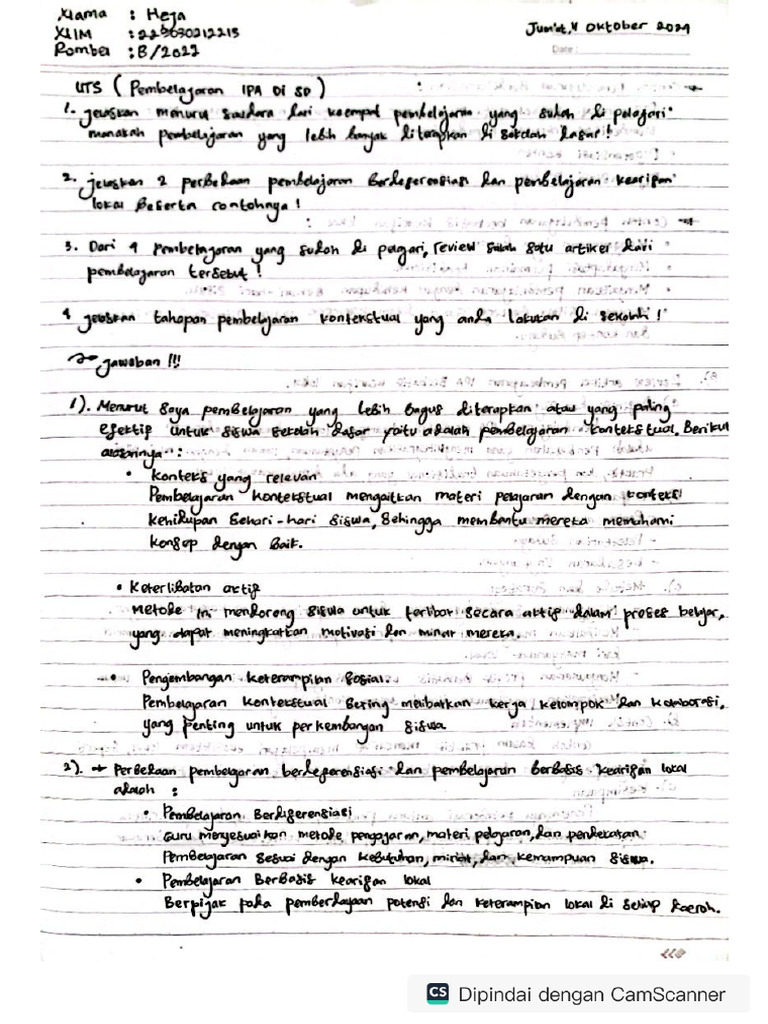 Nama : Heja
NIM : 229630212215
Rombel : B/2022
Jum'at, 4 Oktober 2024
Date :
UTS ( Pembelajaran IPA Di SD )
1. jelaskan menurut saudara dari keempat pembelajaran yang sudah di pelajari
manakah pembelajaran yang lebih banyak diterapkan di sekolah dasar !
2. jelaskan 2 perbedaan pembelajaran Berdeferensiasi dan pembelajaran kearifan
lokal Beserta contohnya !
3. Dari 4 pembelajaran yang sudah di pelajari, review salah satu artikel dari
pembelajaran tersebut !
4 jelaskan tahapan pembelajaran kontekstual yang anda lakukan di sekolah !
Jawaban !!!
1). Menurut saya pembelajaran yang lebih bagus diterapkan atau yang paling
efektif untuk siswa sekolah dasar yaitu adalah pembelajaran kontekstual. Berikut
alasannya :
• konteks yang relevan
Pembelajaran kontekstual mengaitkan materi pelajaran dengan konteks
kehidupan sehari-hari siswa, sehingga membantu mereka memahami
konsep dengan baik.
• Keterlibatan aktif
Metode ini mendorong siswa untuk terlibat secara aktif dalam proses belajar,
yang dapat meningkatkan motivasi dan minat mereka.
• Pengembangan keterampilan sosial
Pembelajaran kontekstual sering melibatkan kerja kelompok dan kolaborasi,
yang penting untuk perkembangan siswa
2). → Perbedaan pembelajaran berdeferensiasi dan pembelajaran berbasis kearifan lokal
adalah :
• Pembelajaran Berdiferensiasi
Guru menyesuaikan metode pengajaran, materi pelajaran, dan pendekatan
Pembelajaran sesuai dengan kebutuhan, minat, dan kemampuan siswa.
• Pembelajaran Berbasis kearifan lokal
Berpijak pada pemberdayaan potensi dan keterampilan lokal di setiap daerah.
CS Dipindai dengan CamScanner